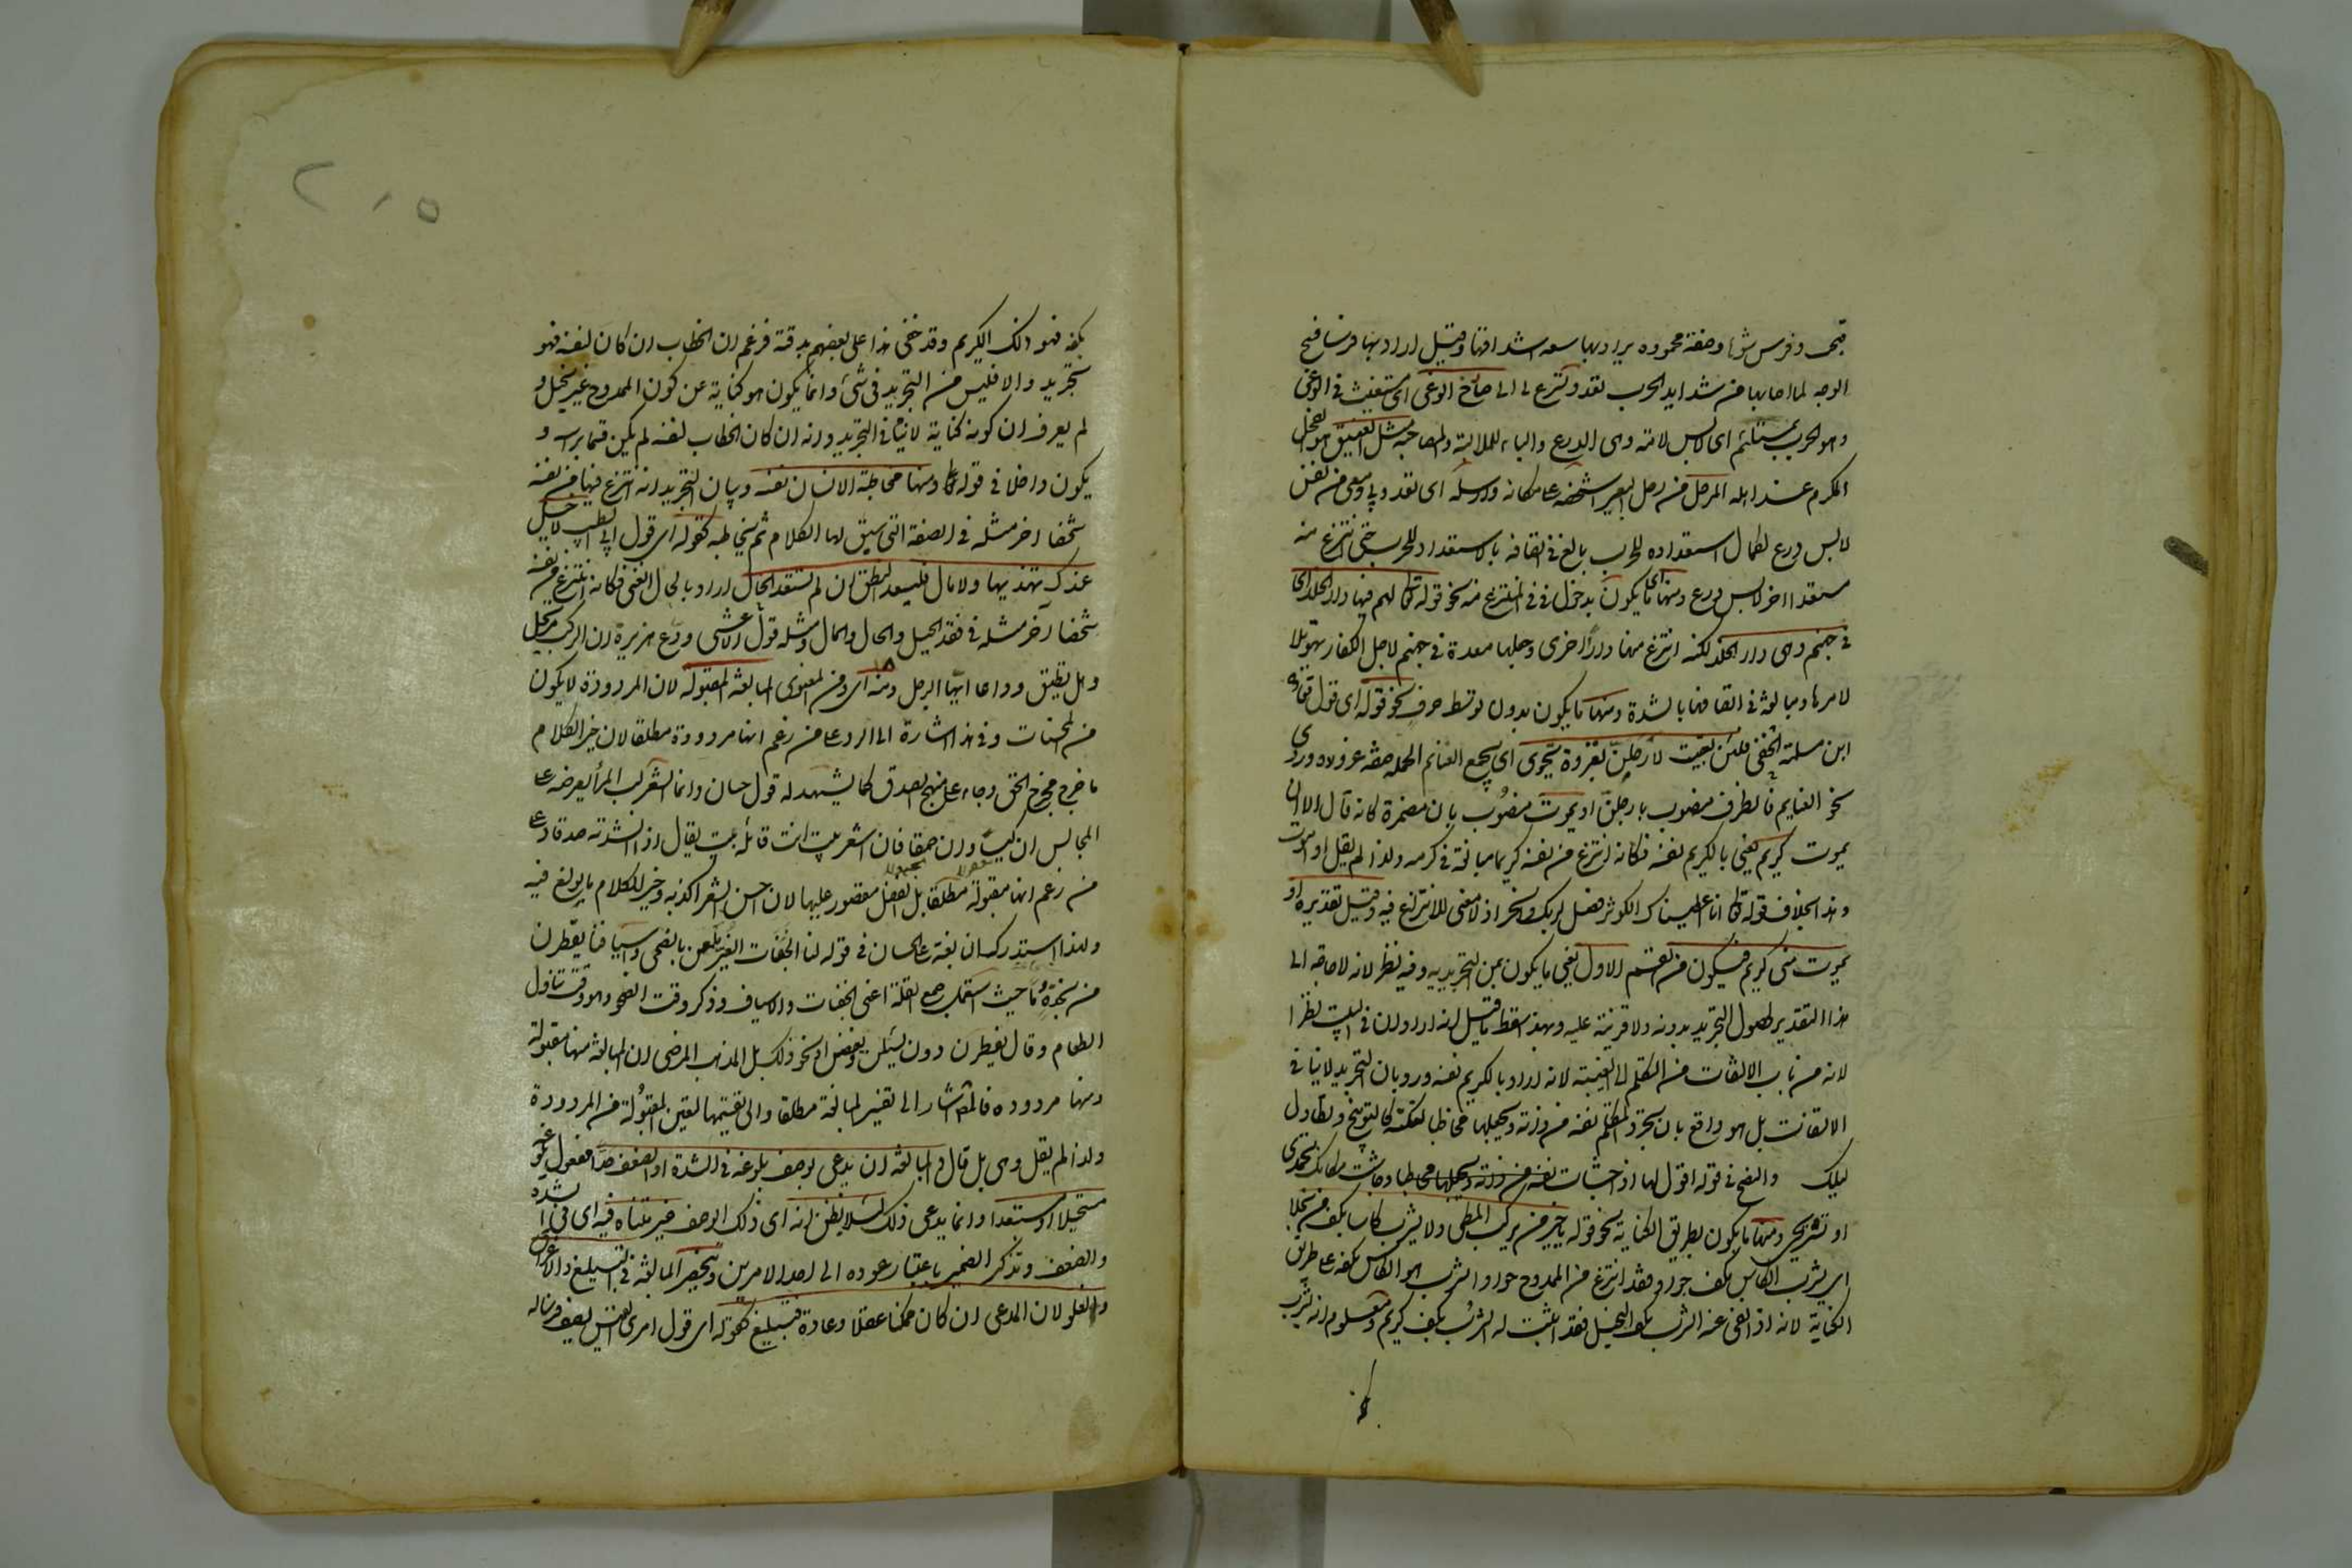 قبحى وفرس شوهاء صفة محمودة يراد بها سعة اشداقها وقيل اراد بها فرسا قبيح
الوجه لما اصابها من شدايد الحرب تعدو تسرع بى الى صارخ الوغى اى مستغيث فى الوغى
وهو الحرب بمستلئم اى لابس لامة وهى الدرع والباء للملابسة والمصاحبة مثل الفنيق هو الفحل
المكرم عند اهله المرحل من رحل البعير اشخصه عن مكانه وارسله اى تعدو بى ومعى من نفسى
لابس درع لكمال استعداده للحرب بالغ فى اتصافه بالاستعداد للحرب حتى انتزع منه
مستعدا اخر لابس درع ومنها ما يكون بدخول فى فى المنتزع منه نحو قوله تعالى لهم فيها دار الخلد اى
فى جهنم وهى دار الخلد لكنه انتزع منها دارا اخرى وجعلها معدة فى جهنم لاجل الكفار تهويلا
لامرها ومبالغة فى اتصافها بالشدة ومنها ما يكون بدون توسط حرف نحو قوله اى قول قتادة
ابن مسلمة الحنفى فلئن بقيت لارحلن بغزوة تحوى اى تجمع الغنائم الجملة صفة غزوة وروى
نحو الغنايم فالظرف منصوب بارحلن او يموت منصوب بان مضمرة كانه قال الا ان
يموت كريم يعنى بالكريم نفسه فكانه انتزع من نفسه كريما مبالغة فى كرمه ولذا لم يقل او اموت
وهذا بخلاف قوله تعالى انا اعطيناك الكوثر فصل لربك وانحر اذ لا معنى للانتزاع فيه وقيل تقديره او
يموت منى كريم فيكون من القسم الاول يعنى ما يكون بمن التجريدية وفيه نظر لانه لا حاجة الى
هذا التقدير لحصول التجريد بدونه ولا قرينة عليه وبهذا سقط ما قيل انه اراد ان فى البيت نظرا
لانه من باب الالتفات من التكلم الى الغيبة لانه اراد بالكريم نفسه ورد بان التجريد لا ينافى
الالتفات بل هو واقع بان يجرد المتكلم نفسه من ذاته ويجعلها مخاطبا لنكتة كالتوبيخ وتطاول
ليلك والنصح فى قوله اقول لها اذا جشأت نفسه من ذاته ويجعلها مخاطبا وجاشت مكانك تحمدى
او تستريحى ومنها ما يكون بطريق الكناية نحو قوله يا خير من يركب المطى ولا يشرب كأسا بكف من بخلا
اى يشرب الكأس بكف جواد فقد انتزع من الممدوح جوادا يشرب هو الكأس بكفه على طريق
الكناية لانه اذا نفى عنه الشرب بكف البخيل فقد اثبت له الشرب بكف كريم ومعلوم انه يشرب
بكفه
٢٠٥
بكفه فهو ذلك الكريم وقد خفى هذا على بعضهم بدقته فزعم ان الخطاب ان كان لنفسه فهو
تجريد والا فليس من التجريد فى شئ وانما يكون هو كناية عن كون الممدوح غير بخيل و
لم يعرف ان كونه كناية لا ينافى التجريد وانه ان كان الخطاب لنفسه لم يكن قسما براسه و
يكون داخلا فى قوله ومنها مخاطبة الانسان نفسه وبيان التجريد انه انتزع فيها من نفسه
شخصا اخر مثله فى الصفة التى سيق لها الكلام ثم يخاطبه كقوله اى قول ابى الطيب لا خيل
عندك تهديها ولا مال فليسعد النطق ان لم تسعد الحال اراد بالحال الغنى فكانه انتزع من نفسه
شخصا آخر مثله فى فقد الخيل والحال والمال ومثله قول الاعشى ودع هريرة ان الركب مرتحل
وهل تطيق وداعا ايها الرجل ومنه اى ومن المعنوى المبالغة المقبولة لان المردودة لا يكون
من المحسنات وفى هذا اشارة الى الرد على من زعم انها مردودة مطلقا لان خير الكلام
ما خرج مخرج الحق وجاء على منهج الصدق كما يشهد له قول حسان وانما الشعر لب المرأ يعرضه على
المجالس ان كيسا وان حمقا فان اشعر بيت انت قائله بيت يقال اذا انشدته صدقا وعلى
من زعم انها مقبولة مطلقا بل الفضل مقصور عليها لان احسن الشعر اكذبه وخير الكلام ما بولغ فيه
ولهذا استدرك النابغة على حسان فى قوله لنا الجفنات الغر يلمعن بالضحى واسيافنا يقطرن
من نجدة دما حيث استعمل جمع القلة اعنى الجفنات والاسياف وذكر وقت الضحوة وهو وقت تناول
الطعام وقال يقطرن دون يسلن ويفضن او نحو ذلك بل المذهب المرضى ان المبالغة منها مقبولة
ومنها مردودة فالمصنف اشار الى تفسير المبالغة مطلقا والى تقسيمها لتعين المقبولة من المردودة
ولذا لم يقل وهى بل قال والمبالغة ان يدعى لوصف بلوغه فى الشدة او الضعف حدا مفعول بلوغه
مستحيلا او مستبعدا وانما يدعى ذلك لئلا يظن انه اى ذلك الوصف غير متناه فيه اى فى الشدة
والضعف وتذكير الضمير باعتبار عوده الى احد الامرين وتنحصر المبالغة فى التبليغ والاغراق
والغلو لان المدعى ان كان ممكنا عقلا وعادة فتبليغ كقوله اى قول امرئ القيس يصف فرسا له